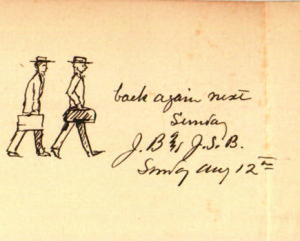 back again next
Sunday
J. B & J. S. B.
Sunday Aug 12th